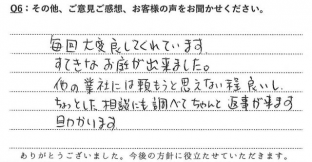 Q6：その他、ご意見ご感想、お客様の声をお聞かせください。
毎回大変良してくれています
すてきなお庭が出来ました。
他の業社には頼もうと思えない程良いし、
ちょっとした相談にも調べてちゃんと返事が来ます
助かります
ありがとうございました。今後の方針に役立たせていただきます。